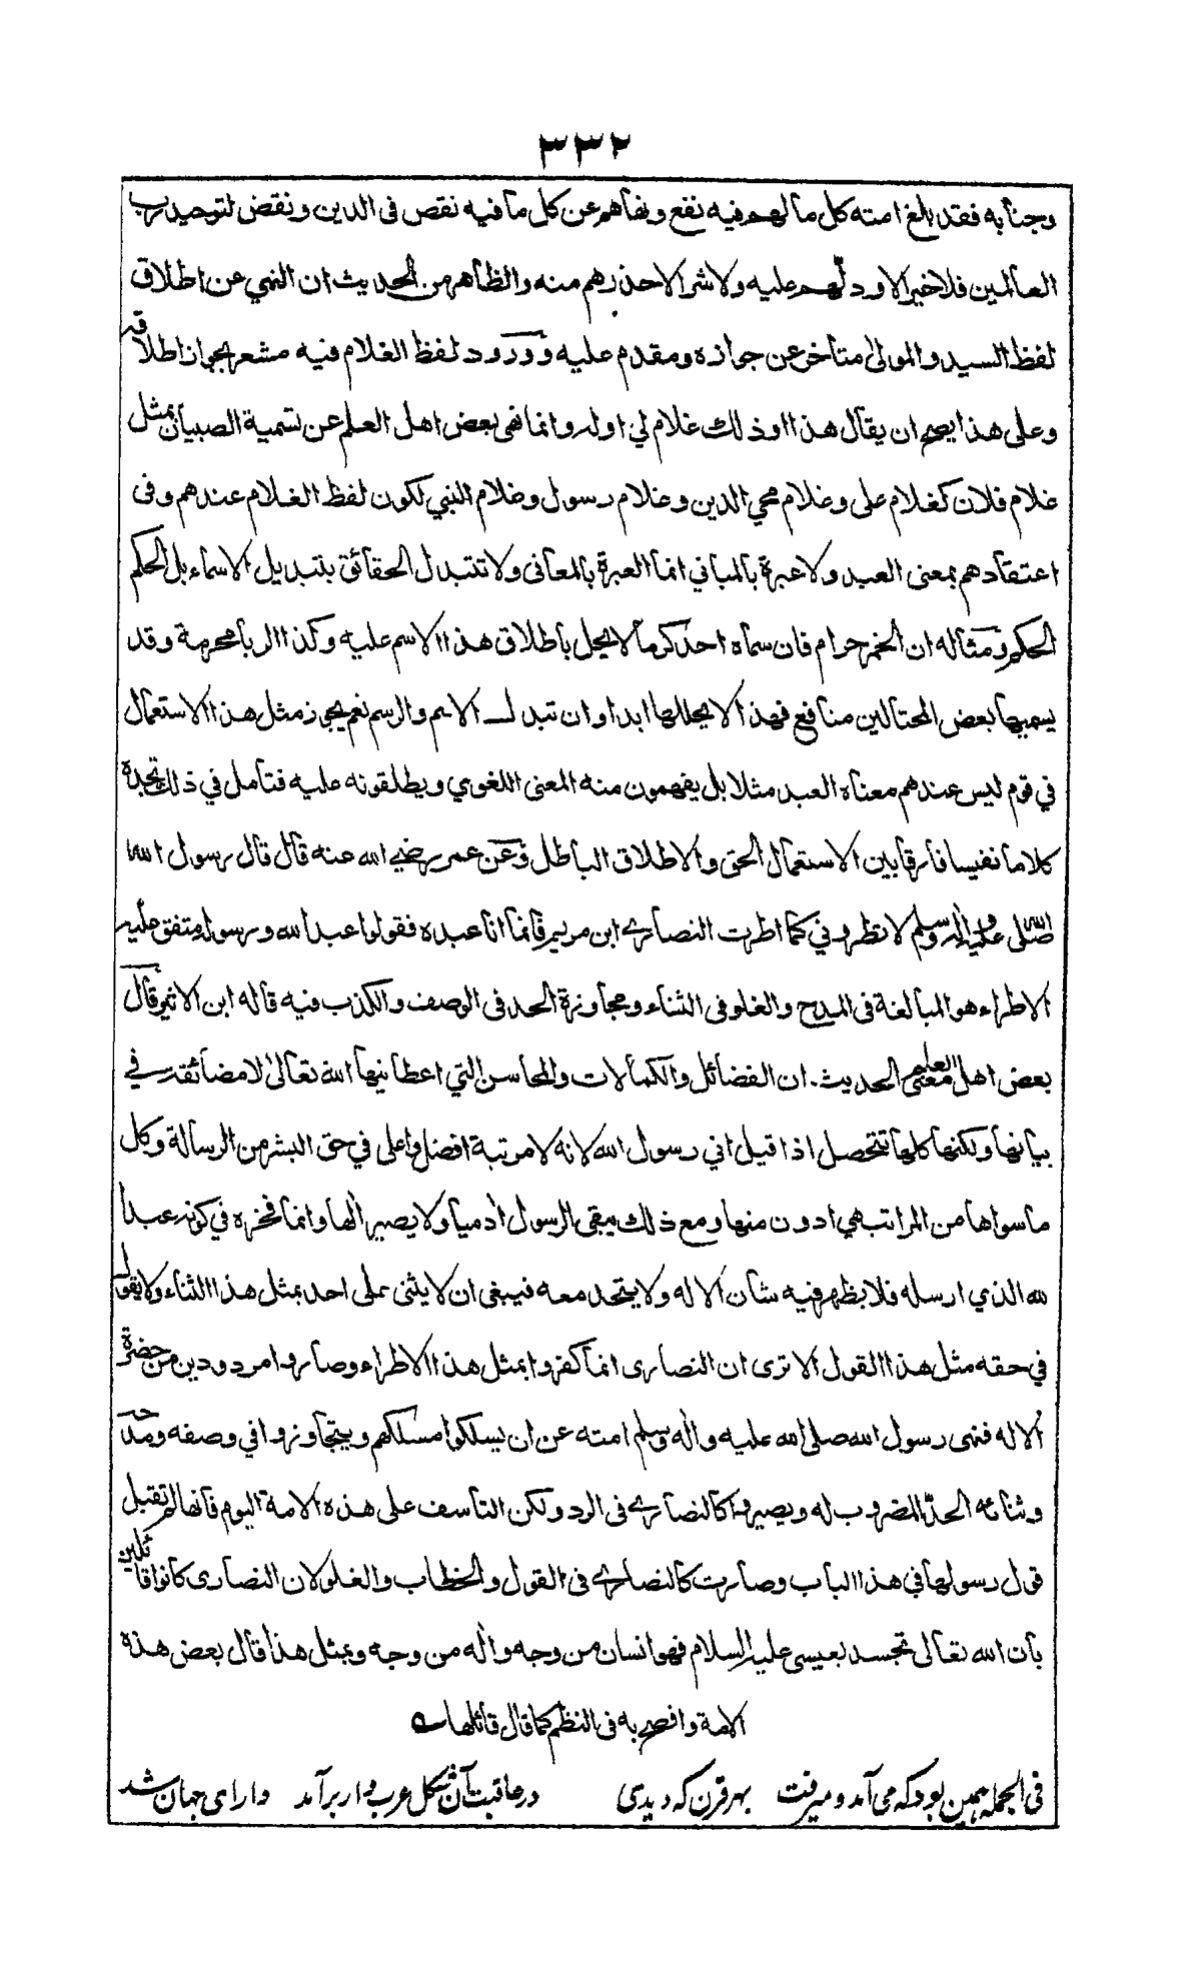 ٣٣٢
وجنابه فقد بلغ امته كل ما لهم فيه نفع ونهاهم عن كل ما فيه نقص فى الدين ونقض لتوحيد رب
العالمين فلا خير الا ودلّهم عليه ولا شر الا حذرهم منه والظاهر من الحديث ان النهي عن اطلاق
لفظ السيد والمولى متاخر عن جوازه ومقدم عليه وورود لفظ الغلام فيه مشعر بجواز اطلاقه
وعلى هذا يصح ان يقال هذا او ذلك غلام لي او له وانما نهى بعض اهل العلم عن تسمية الصبيان بمثل
غلام فلان كغلام على وغلام محي الدين وغلام رسول وغلام النبي لكون لفظ الغلام عندهم وفى
اعتقادهم بمعنى العبد ولا عبرة بالمباني انما العبرة بالمعانى ولا تتبدل الحقائق بتبديل الاسماء بل الحكم
الحكم ومثاله ان الخمر حرام فان سماه احد كرما لا يحل باطلاق هذا الاسم عليه وكذا الربا محرمة وقد
يسميها بعض المحتالين منافع فهذا لا يحللها ابدا وان تبدل الاسم والرسم نعم يجوز مثل هذا الاستعمال
في قوم ليس عندهم معناه العبد مثلا بل يفهمون منه المعنى اللغوي ويطلقونه عليه فتامل في ذلك تجده
كلاما نفيسا فارقا بين الاستعمال الحق والاطلاق الباطل وعن عمر رضي الله عنه قال قال رسول الله
صلى الله عليه واله وسلم لا تطروني كما اطرت النصارى ابن مريم فانما انا عبده فقولوا عبد الله ورسوله متفق عليه
الاطراء هو المبالغة فى المدح والغلو فى الثناء ومجاوزة الحد فى الوصف والكذب فيه قاله ابن الاثير وقال
بعض اهل العلم معنى الحديث ان الفضائل والكمالات والمحاسن التي اعطانيها الله تعالى لا مضائقة في
بيانها ولكنها كلها تتحصل اذا قيل اني رسول الله لانه لا مرتبة افضل واعلى في حق البشر من الرسالة وكل
ما سواها من المراتب هي ادون منها ومع ذلك يبقى الرسول ادميا ولا يصير الها وانما فخره في كونه عبدا
لله الذي ارسله فلا يظهر فيه شان الاله ولا يتحد معه فينبغى ان لا يثنى على احد بمثل هذا الثناء ولا يقول
في حقه مثل هذا القول الا ترى ان النصارى انما كفروا بمثل هذا الاطراء وصاروا مردودين من حضرة
الاله فنهى رسول الله صلى الله عليه واله وسلم امته عن ان يسلكوا مسلكهم ويتجاوزوا في وصفه ومدحه
وثنائه الحدّ المضروب له ويصيروا كالنصارى فى الرد ولكن التاسف على هذه الامة اليوم فانها لم تقبل
قول رسولها في هذا الباب وصارت كالنصارى فى القول والخطاب والغلو لان النصارى كانوا قائلين
بان الله تعالى تجسد بعيسى عليه السلام فهو انسان من وجه واله من وجه وبمثل هذا قال بعض هذه
الامة وافصح به فى النظم كما قال قائلها ـه
فى الجمله همين بود كه مى آمد و ميرفت بهر قرن كه ديدى در عاقبت آن شكل عرب وار برآمد داراى جهان شد